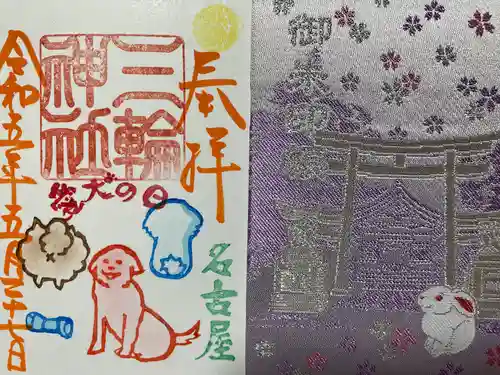 奉拝
三輪
神社
犬の日
令和五年五月二十七日
名古屋
御朱印帳